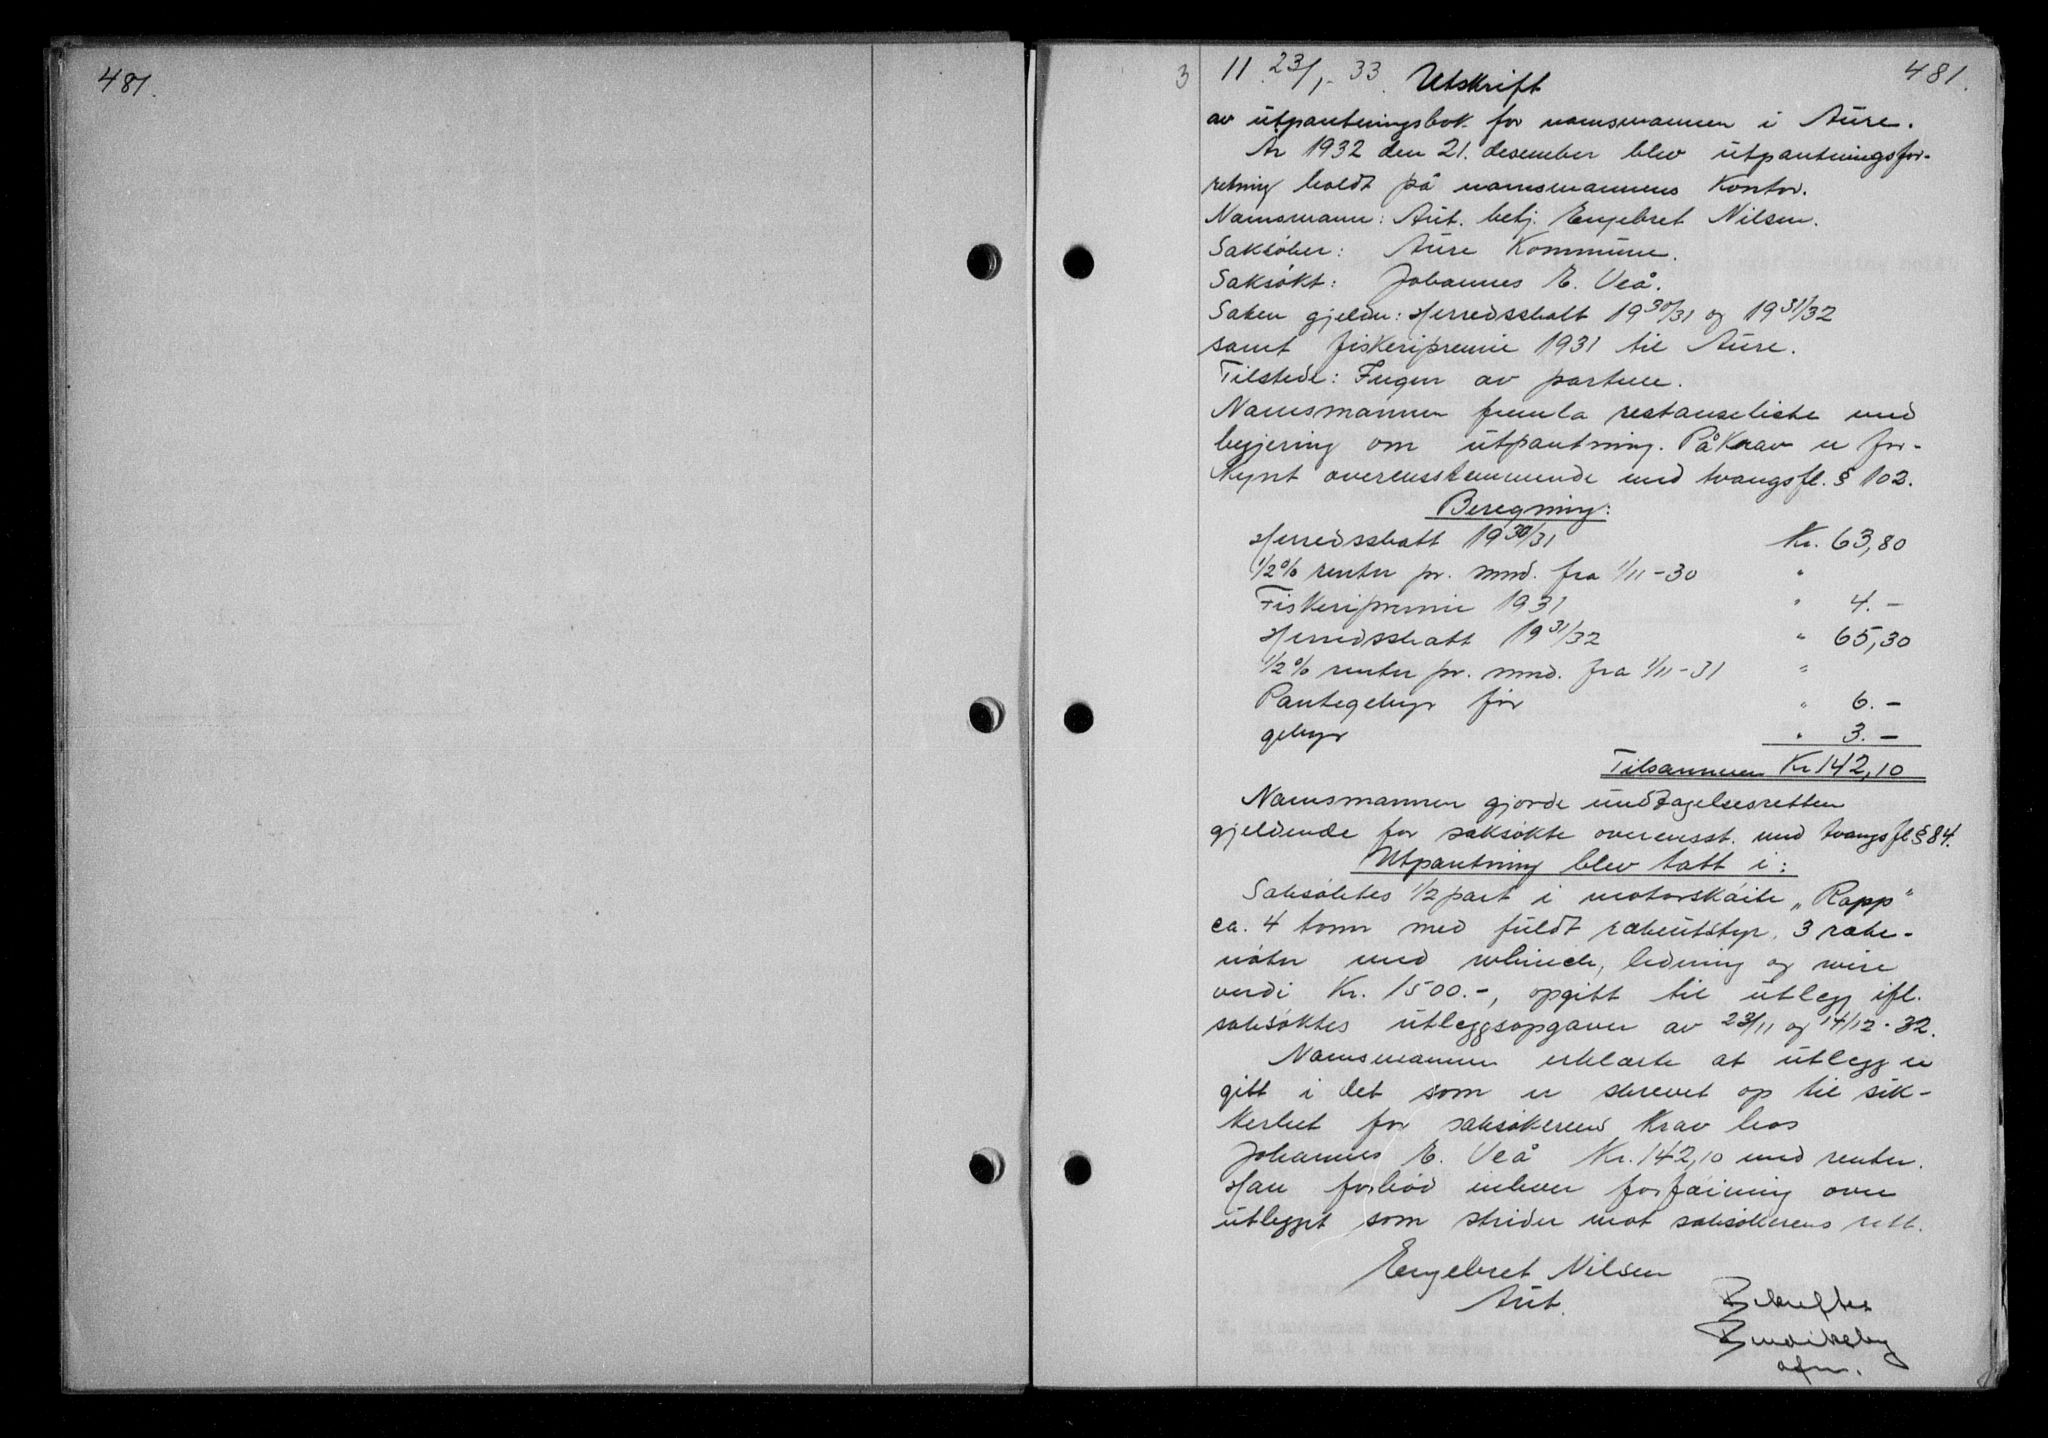 481.
3 11 23/1-33. Utskrift 481.
av utpantningsbok for namsmannen i Aure.
År 1932 den 21. desember blev utpantningsfor-
retning holdt på namsmannens Kontor.
Namsmann: Aut. betj. Engebret Nilsen.
Saksøker: Aure Kommune.
Saksøkt: Johannes E. Veå.
Saken gjelder: Herredsskatt 1930/31 og 1931/32
samt fiskeripremie 1931 til Aure.
Tilstede: Ingen av partene.
Namsmannen fremla restanseliste med
begjering om utpantning. Påkrav er for-
kynt overensstemmende med tvangsfl. § 102.
Beregning:
Herredsskatt 1930/31 Kr. 63,80
1/2% renter pr. mnd. fra 1/11-30 "
Fiskeripremie 1931 " 4.-
Herredsskatt 1931/32 " 65,30
1/2% renter pr. mnd. fra 1/11-31 "
Pantegebyr før " 6.-
gebyr " 3.-
Tilsammen Kr 142,10
Namsmannen gjorde undtagelsesretten
gjeldende for saksøkte overensst. med tvangsfl § 84.
Utpantning blev tatt i:
Saksøktes 1/2 part i motorskøite „Rapp"
ca. 4 tonn med fuldt rekeutstyr, 3 reke-
nøter med whinch, ledning og wire
verdi Kr. 1500.-, opgitt til utlegg ifl.
saksøktes utleggsopgaver av 23/11 og 14/12-32.
Namsmannen erklærte at utlegg er
gitt i det som er skrevet op til sik-
kerhet for saksøkerens krav hos
Johannes E. Veå Kr. 142,10 med renter.
Han forbød enhver forføining over
utlegget som strider mot saksøkerens rett.
Engebret Nilsen
Aut.
Bekreftes